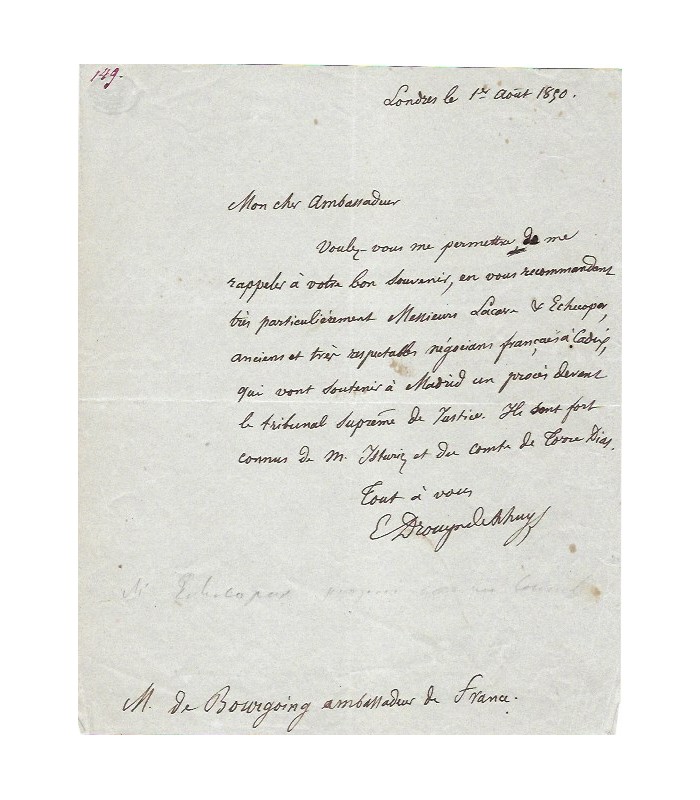 149.
Londres le 1er Août 1850.
Mon cher Ambassadeur
Voulez-vous me permettre de me
rappeler à votre bon souvenir, en vous recommandant
très particulièrement Messieurs Lacave & Echecopar,
anciens et très respectables négocians français à Cadix,
qui vont soutenir à Madrid un procès devant
le tribunal suprême de Justice. Ils sont fort
connus de M. Isturiz et du comte de Torre Diaz.
Tout à vous
E Drouyn de Lhuys
Mr Echecopar
M. de Bourgoing ambassadeur de France.